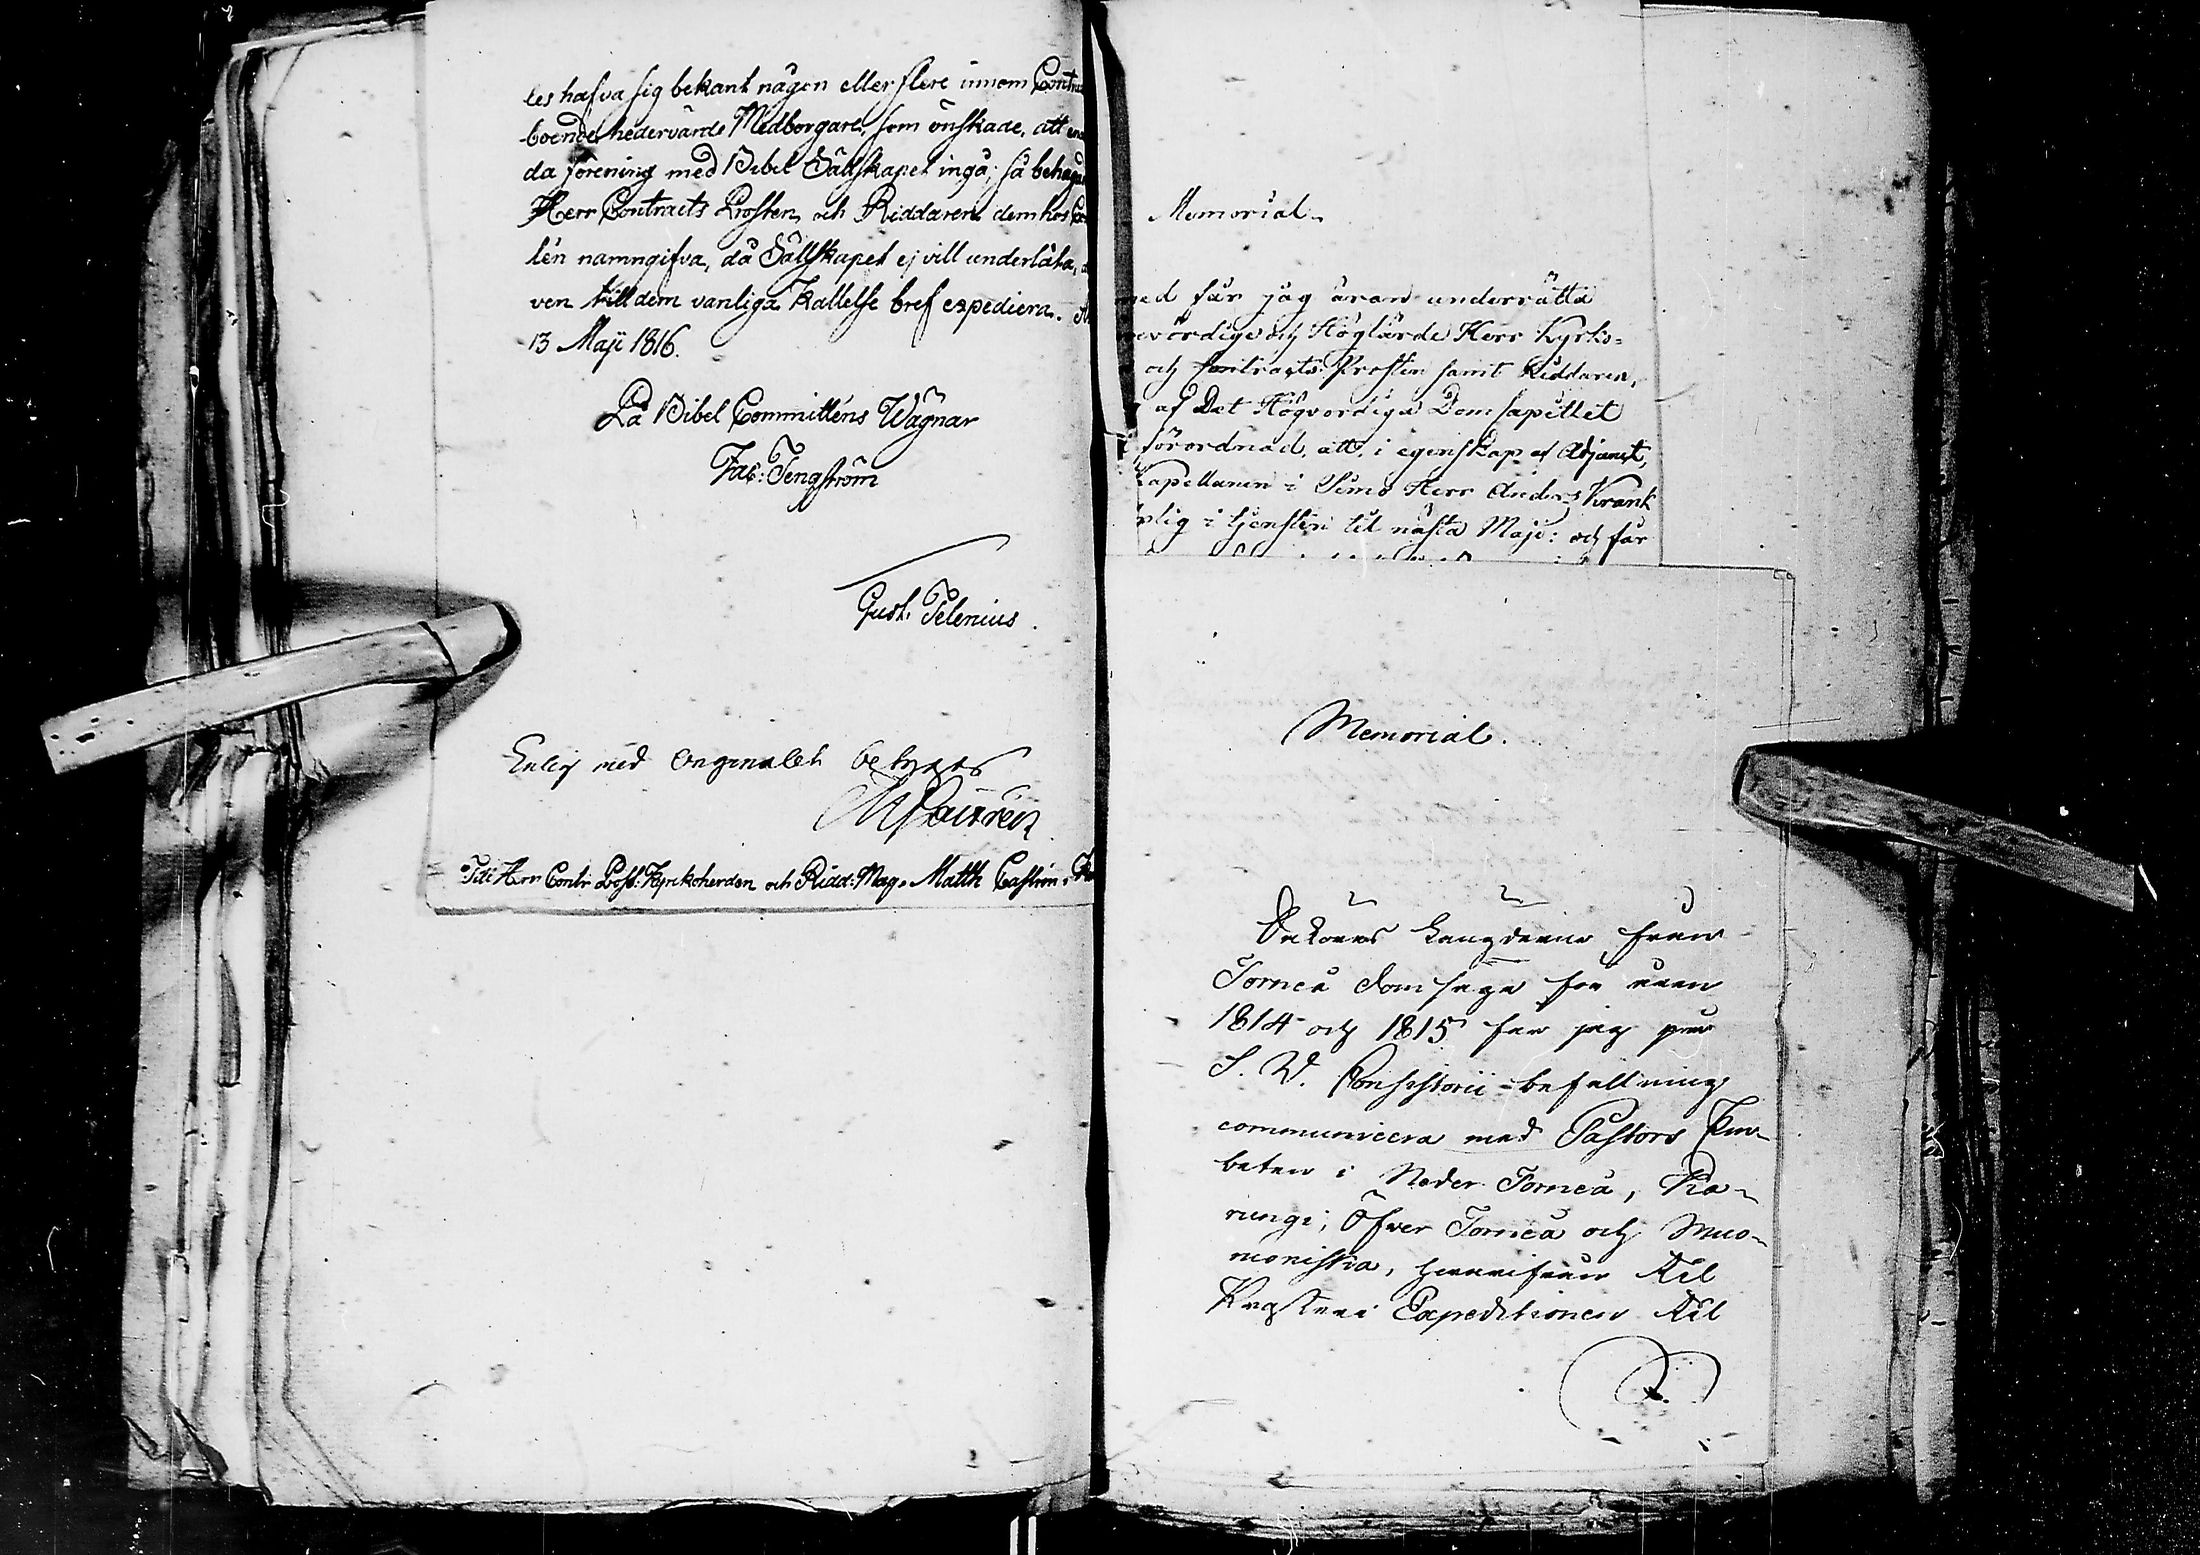 les hafva sig bekant någon eller flere innom Contra
boende hedervärde Medborgare, som önskade, att en
da förening med Bibel Sällskapet ingå; så behaga
Herr Contracts Prosten och Riddaren dem hos Co
tén namngifva, då Sällskapet ej vill underlåta,
ven till dem vanliga Kallelse bref expediera.
13 Maji 1816.
På Bibel Committéns Wägnar
Jac: Tengström
Gust. Telenius
Enlig med Originalet betygar
M Castrén
Till Herr Contr Prost. Kyrkoherden och Ridd: Mag. Matth Castrén
Memorial.
med får jag äran underrätta
vördige och Höglärde Herr Kyrko-
och Contracts Prosten samt Riddaren,
af Det Högvördiga Dom Capitlet
förordnad, att, i egenskap af Adjunct,
Capellanen i Simo Herr Anders Krank
lig i tjensten til nästa Maji: och får
Memorial.
Sakörs Längderne från
Torneå Domsaga för åren
1814 och 1815 får jag på
S. V. Consistorii befallning
communicera med Pastors Em-
beten i Neder Torneå, Ka-
rungi, Öfver Torneå och Muo-
nioniska, hvarifrån til
Expeditionen til